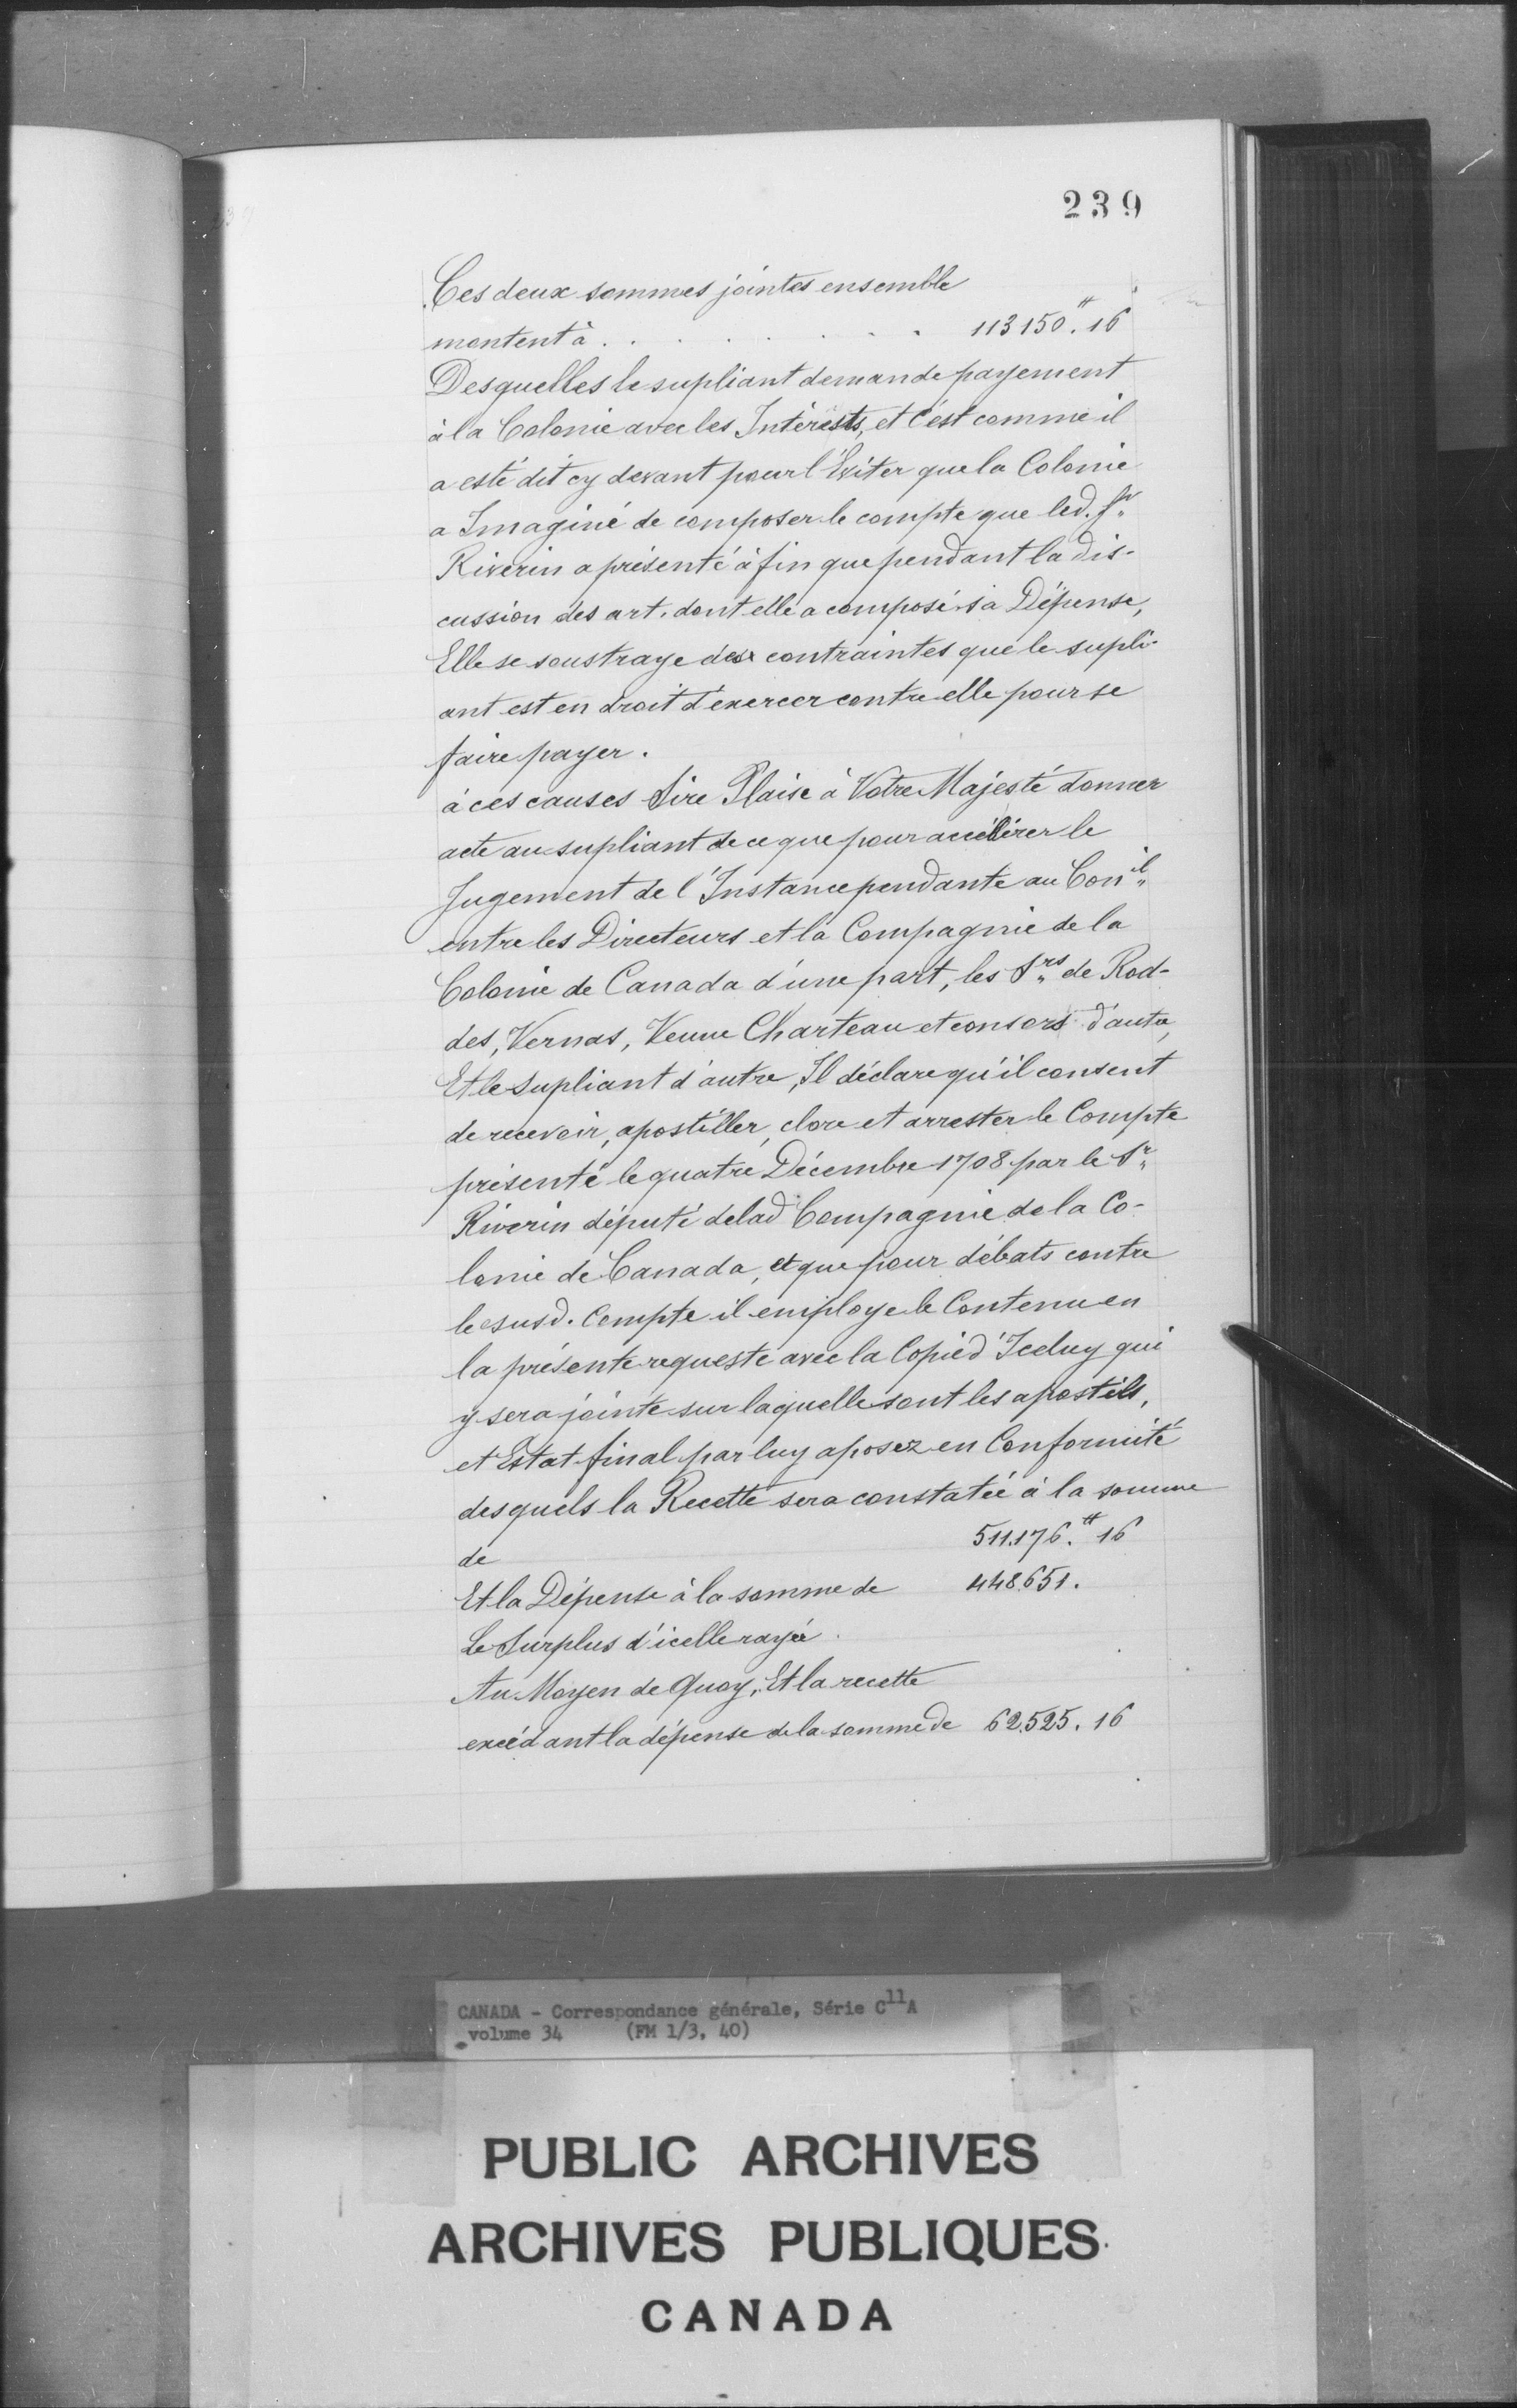 239
Ces deux sommes jointes ensemble
montent à . . . . . . . . 113150.# 16
Desquelles le supliant demande payement
à la Colonie avec les Intérests, et c'est comme il
a esté dit cy devant pour l'Eviter que la Colonie
a Imaginé de composer le compte que led. Sr
Riverin a présenté à fin que pendant la dis-
cussion des art. dont elle a composé sa Dépense,
Elle se soustraye des contraintes que le supli-
ant est en droit d'exercer contre elle pour se
faire payer.
à ces causes Sire Plaise à Votre Majesté donner
acte au supliant de ce que pour accélérer le
Jugement de l'Instance pendante au Conil
entre les Directeurs et la Compagnie de la
Colonie de Canada d'une part, les Srs de Rod-
des, Vernas, Veuve Charteau et consors d'autre,
Et le Supliant d'autre, Il déclare qu'il consent
de recevoir, apostiller, clore et arrester le Compte
présenté le quatre Décembre 1708 par le Sr
Riverin député delad Compagnie de la Co-
lonie de Canada, et que pour débats contre
le susd. Compte il employe le Contenu en
la présente requeste avec la Copie d'Iceluy qui
y sera jointe sur laquelle sont les apostils,
et Estat final par luy aposez en Conformité
desquels la Recette sera constatée à la somme
de 511.176.# 16
Et la Dépense à la somme de 448.651.
Le Surplus d'icelle rayée.
Au Moyen de Quoy, Et la recette
excédant la dépense de la somme de 62.525. 16
CANADA - Correspondance générale, Série C11A
volume 34 (FM 1/3, 40)
PUBLIC ARCHIVES
ARCHIVES PUBLIQUES
CANADA